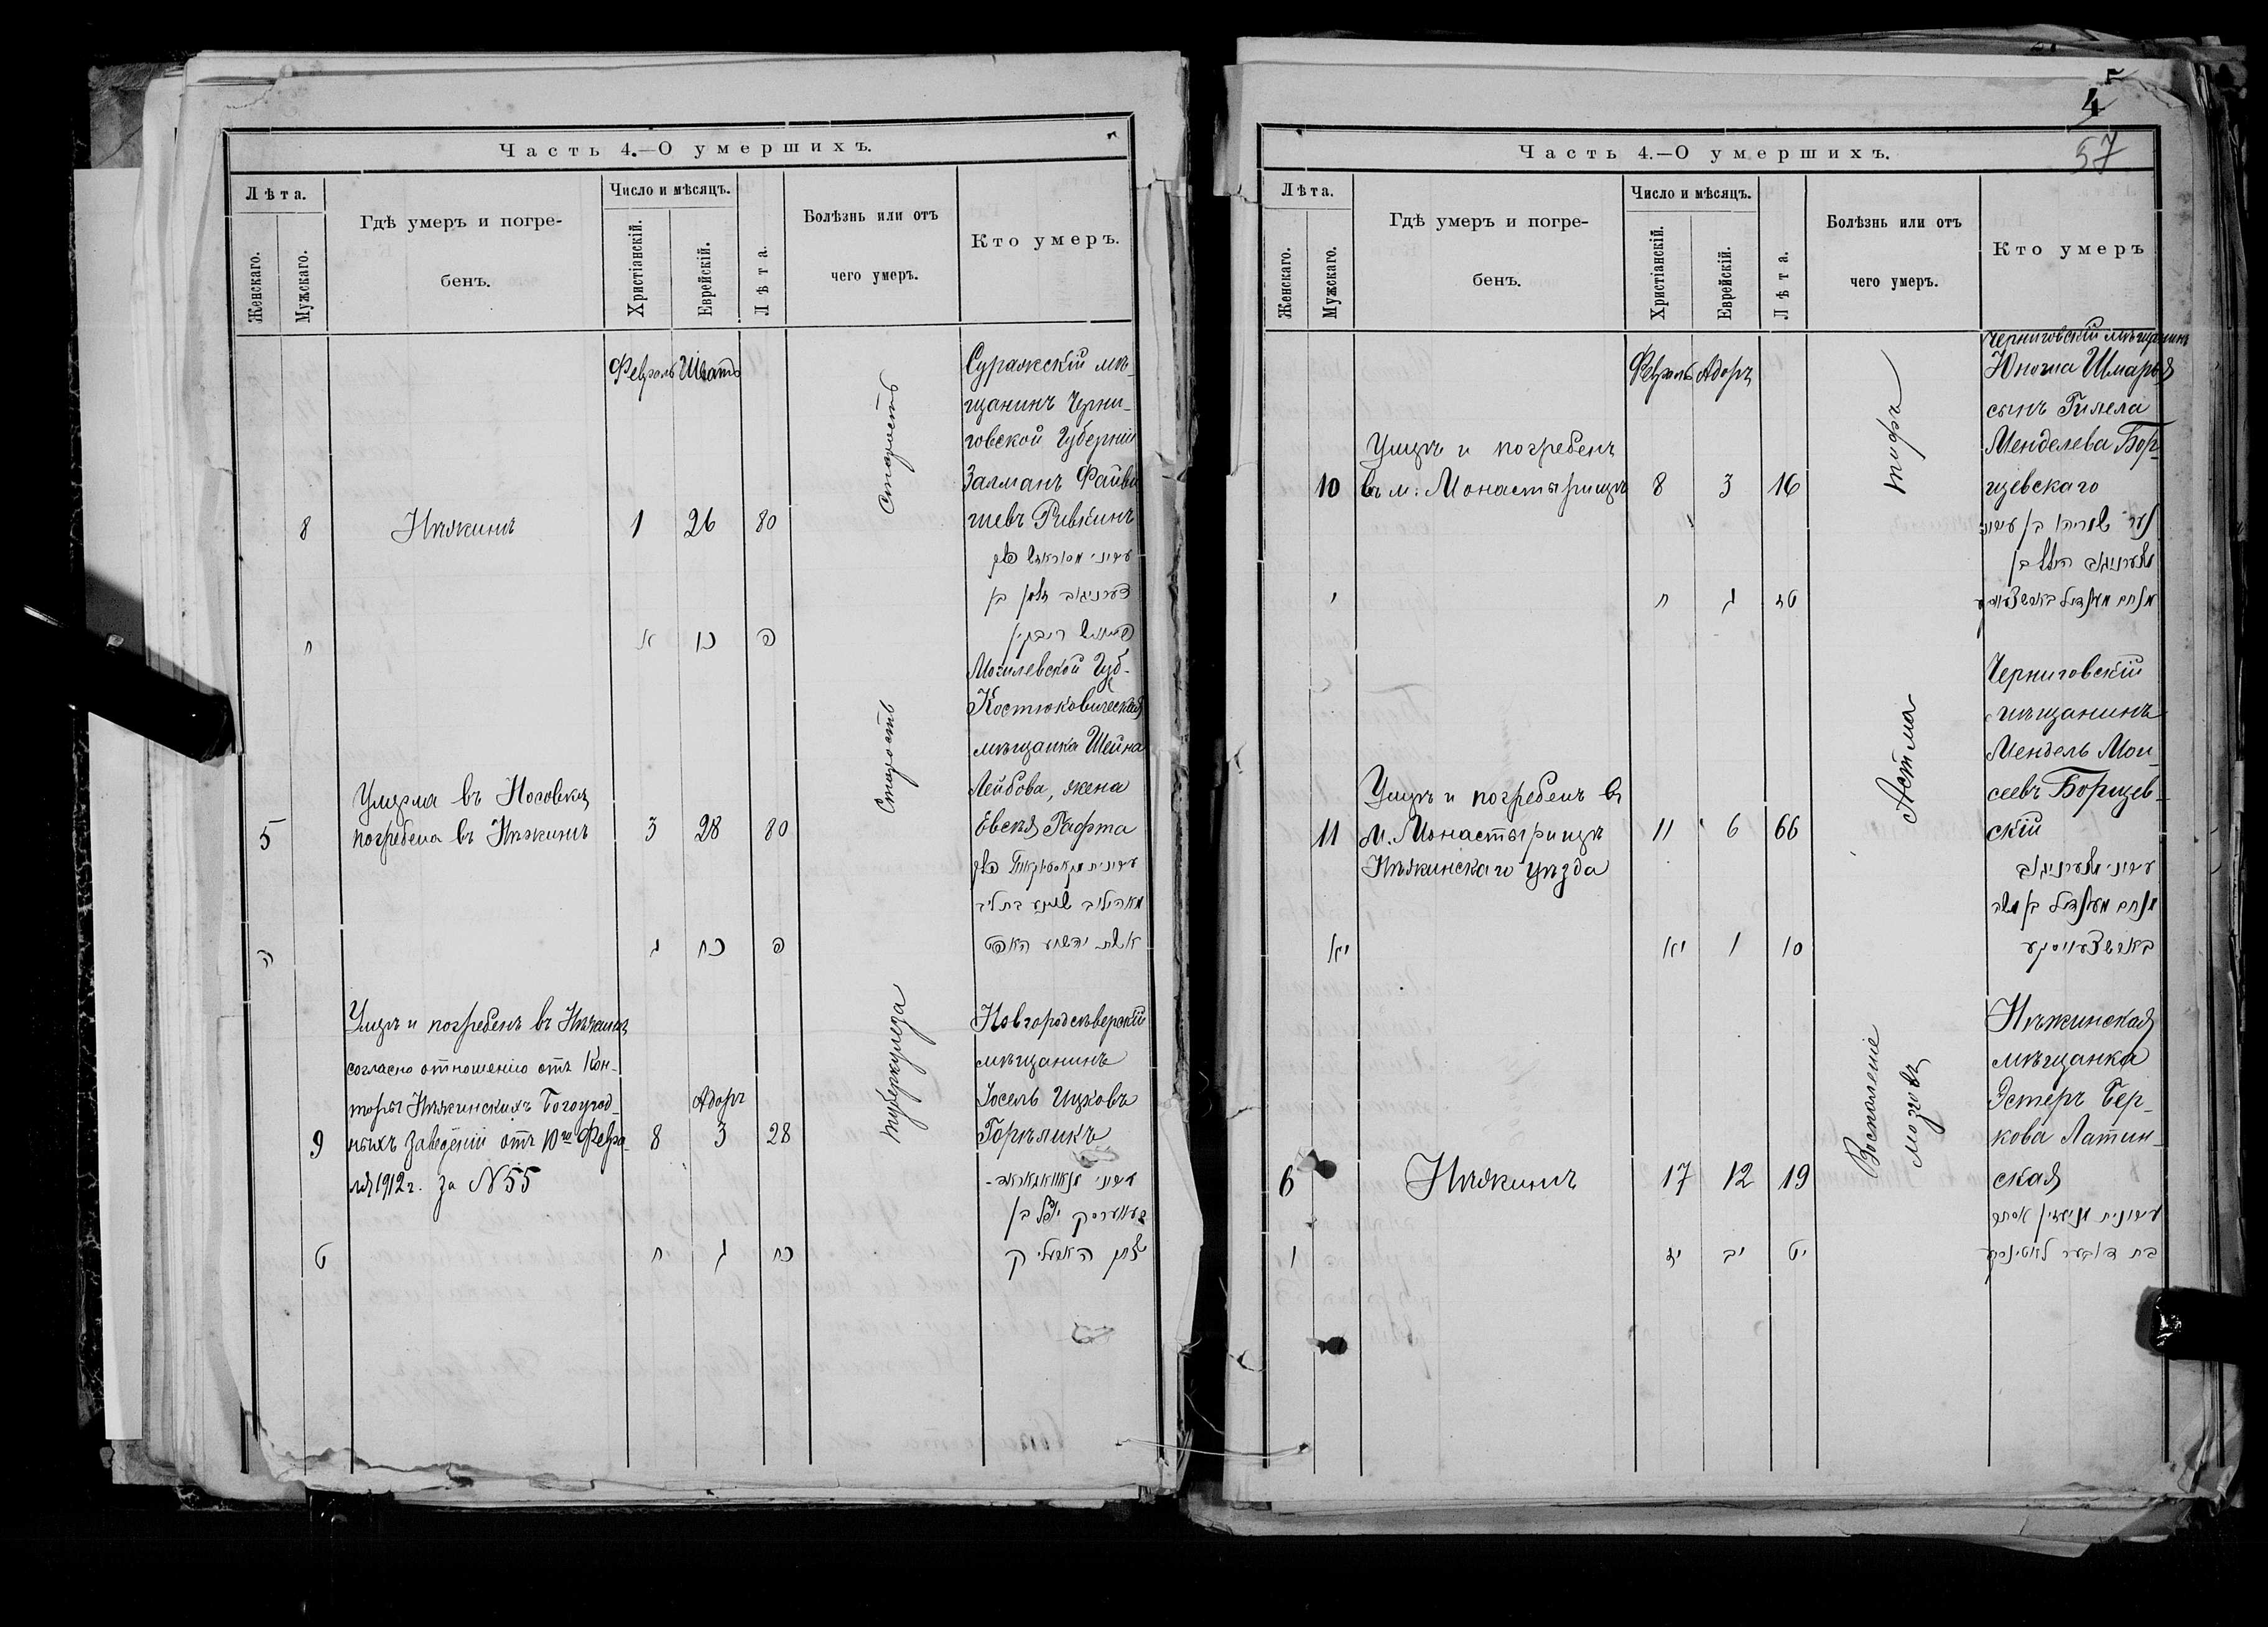 Часть 4.—О умершихъ.
Лѣта.
Женскаго.
Мужскаго.
Гдѣ умеръ и погре-
бенъ.
Число и мѣсяцъ.
Христіанскій.
Еврейскій.
Лѣта.
Болѣзнь или отъ
чего умеръ.
Кто умеръ.
Февраль Шватъ
8
Нѣжинъ
1 26 80
Старость
Суражскій мѣ-
щанинъ Черни-
говской Губерніи
Залманъ Файви-
шевъ Ривкинъ
ח
א כו פ
5
Умерла въ Носовкѣ
погребена въ Нѣжинѣ
3 28 80
Старость
Могилевской Губ.
Костюковическая
мѣщанка Шейна
Лейбова, жена
Евсѣя Рафта
ה
ג כח פ
9
Умеръ и погребенъ въ Нѣжинѣ
согласно отношенію отъ Кон-
торы Нѣжинскихъ Богоугод-
ныхъ Заведеній отъ 10го Февра-
ля 1912 г. за N 55
Адоръ
8 3 28
туберкулеза
Новгородсѣверскій
мѣщанинъ
Іосель Ицковъ
Горѣликъ
ט
ח ג כח
4
57
Часть 4.—О умершихъ.
Лѣта.
Женскаго.
Мужскаго.
Гдѣ умеръ и погре-
бенъ.
Число и мѣсяцъ.
Христіанскій.
Еврейскій.
Лѣта.
Болѣзнь или отъ
чего умеръ.
Кто умеръ
Февраль Адоръ
10
Умеръ и погребенъ
въ м. Монастырищѣ
8 3 16
тифъ
Черниговскій мѣщанинъ
Юноша Шмарья
сынъ Гилела
Менделева Бор-
щевскаго
י
ח ג טז
11
Умеръ и погребенъ въ
м. Монастырищѣ
Нѣжинскаго уѣзда
11 6 66
Астма
Черниговскій
мѣщанинъ
Мендель Мои-
сеевъ Борщев-
скій
יא
יא ו סו
6
Нѣжинъ
17 12 19
Воспаленіе
мозговъ
Нѣжинская
мѣщанка
Эстеръ Бер-
кова Латин-
ская
ו
יז יב יט